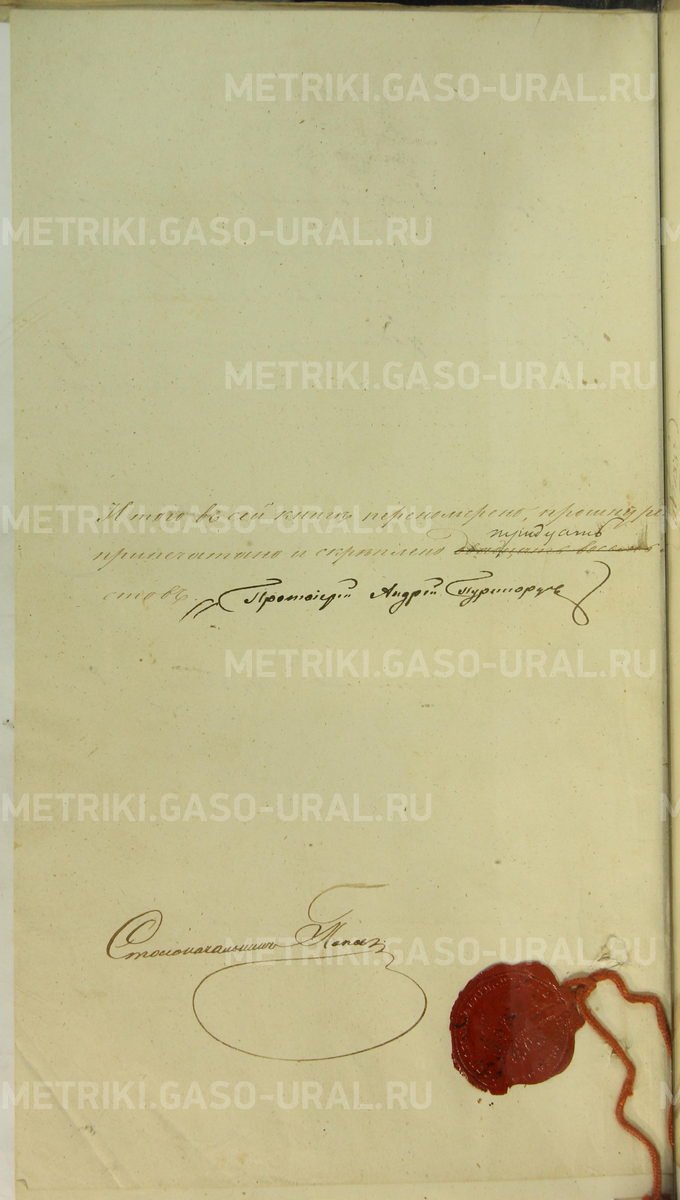 METRIKI.GASO-URAL.RU
METRIKI.GASO-URAL.RU
METRIKI.GASO-URAL.RU
И того в сей книгѣ перенумерено, прошнуре
METRIKI.GASO-URAL.RU
тридцать
припечатано и скрѣплено двадцать восемь
стовъ. Протоіерей Андрей
METRIKI.GASO-URAL.RU
METRIKI.GASO-URAL.RU
Столоначальникъ
METRIKI.GASO-URAL.RU
METRIKI.GASO-URAL.RU